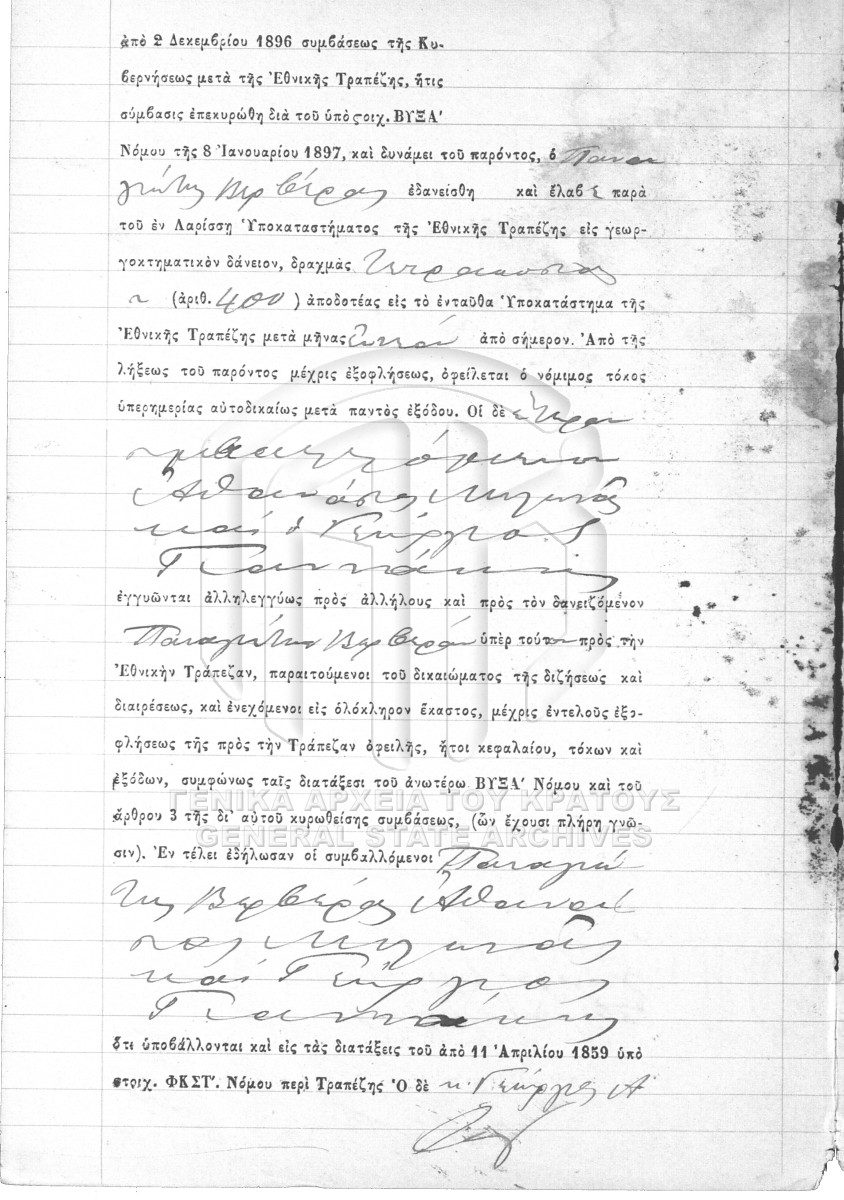 ἀπὸ 2 Δεκεμβρίου 1896 συμβάσεως τῆς Κυ-
βερνήσεως μετὰ τῆς Ἐθνικῆς Τραπέζης, ἥτις
σύμβασις ἐπεκυρώθη διὰ τοῦ ὑπὸ στοιχ. ΒΥΞΑ'
Νόμου τῆς 8 Ἰανουαρίου 1897, καὶ δυνάμει τοῦ παρόντος, ὁ Πανα
γιώτης Βερβέρας ἐδανείσθη καὶ ἔλαβε παρὰ
τοῦ ἐν Λαρίσσῃ Ὑποκαταστήματος τῆς Ἐθνικῆς Τραπέζης εἰς γεωρ-
γοκτηματικὸν δάνειον, δραχμὰς Τετρακοσίας
(ἀριθ. 400) ἀποδοτέας εἰς τὸ ἐνταῦθα Ὑποκατάστημα τῆς
Ἐθνικῆς Τραπέζης μετὰ μῆνας ἀπὸ σήμερον. Ἀπὸ τῆς
λήξεως τοῦ παρόντος μέχρις ἐξοφλήσεως, ὀφείλεται ὁ νόμιμος τόκος
ὑπερημερίας αὐτοδικαίως μετὰ παντὸς ἐξόδου. Οἱ δὲ ἕτεροι
συμβαλλόμενοι
Ἀθανάσιος
καὶ ὁ Γεώργιος
Γιαννάκης
ἐγγυῶνται ἀλληλεγγύως πρὸς ἀλλήλους καὶ πρὸς τὸν δανειζόμενον
Παναγιώτην Βερβέραν ὑπὲρ τούτου πρὸς τὴν
Ἐθνικὴν Τράπεζαν, παραιτούμενοι τοῦ δικαιώματος τῆς διζήσεως καὶ
διαιρέσεως, καὶ ἐνεχόμενοι εἰς ὁλόκληρον ἕκαστος, μέχρις ἐντελοῦς ἐξο-
φλήσεως τῆς πρὸς τὴν Τράπεζαν ὀφειλῆς, ἤτοι κεφαλαίου, τόκων καὶ
ἐξόδων, συμφώνως ταῖς διατάξεσι τοῦ ἀνωτέρω ΒΥΞΑ' Νόμου καὶ τοῦ
ΓΕΝΙΚΑ ΑΡΧΕΙΑ ΤΟΥ ΚΡΑΤΟΥΣ
ἄρθρου 3 τῆς δι' αὐτοῦ κυρωθείσης συμβάσεως, (ὧν ἔχουσι πλήρη γνῶ-
GENERAL STATE ARCHIVES
σιν). Ἐν τέλει ἐδήλωσαν οἱ συμβαλλόμενοι Παναγιώ
της Βερβέρας Ἀθανά
σιος
καὶ Γεώργιος
Γιαννάκης
ὅτι ὑποβάλλονται καὶ εἰς τὰς διατάξεις τοῦ ἀπὸ 11 Ἀπριλίου 1859 ὑπὸ
στοιχ. ΦΚΣΤ'. Νόμου περὶ Τραπέζης Ὁ δὲ κ. Γεώργιος Α